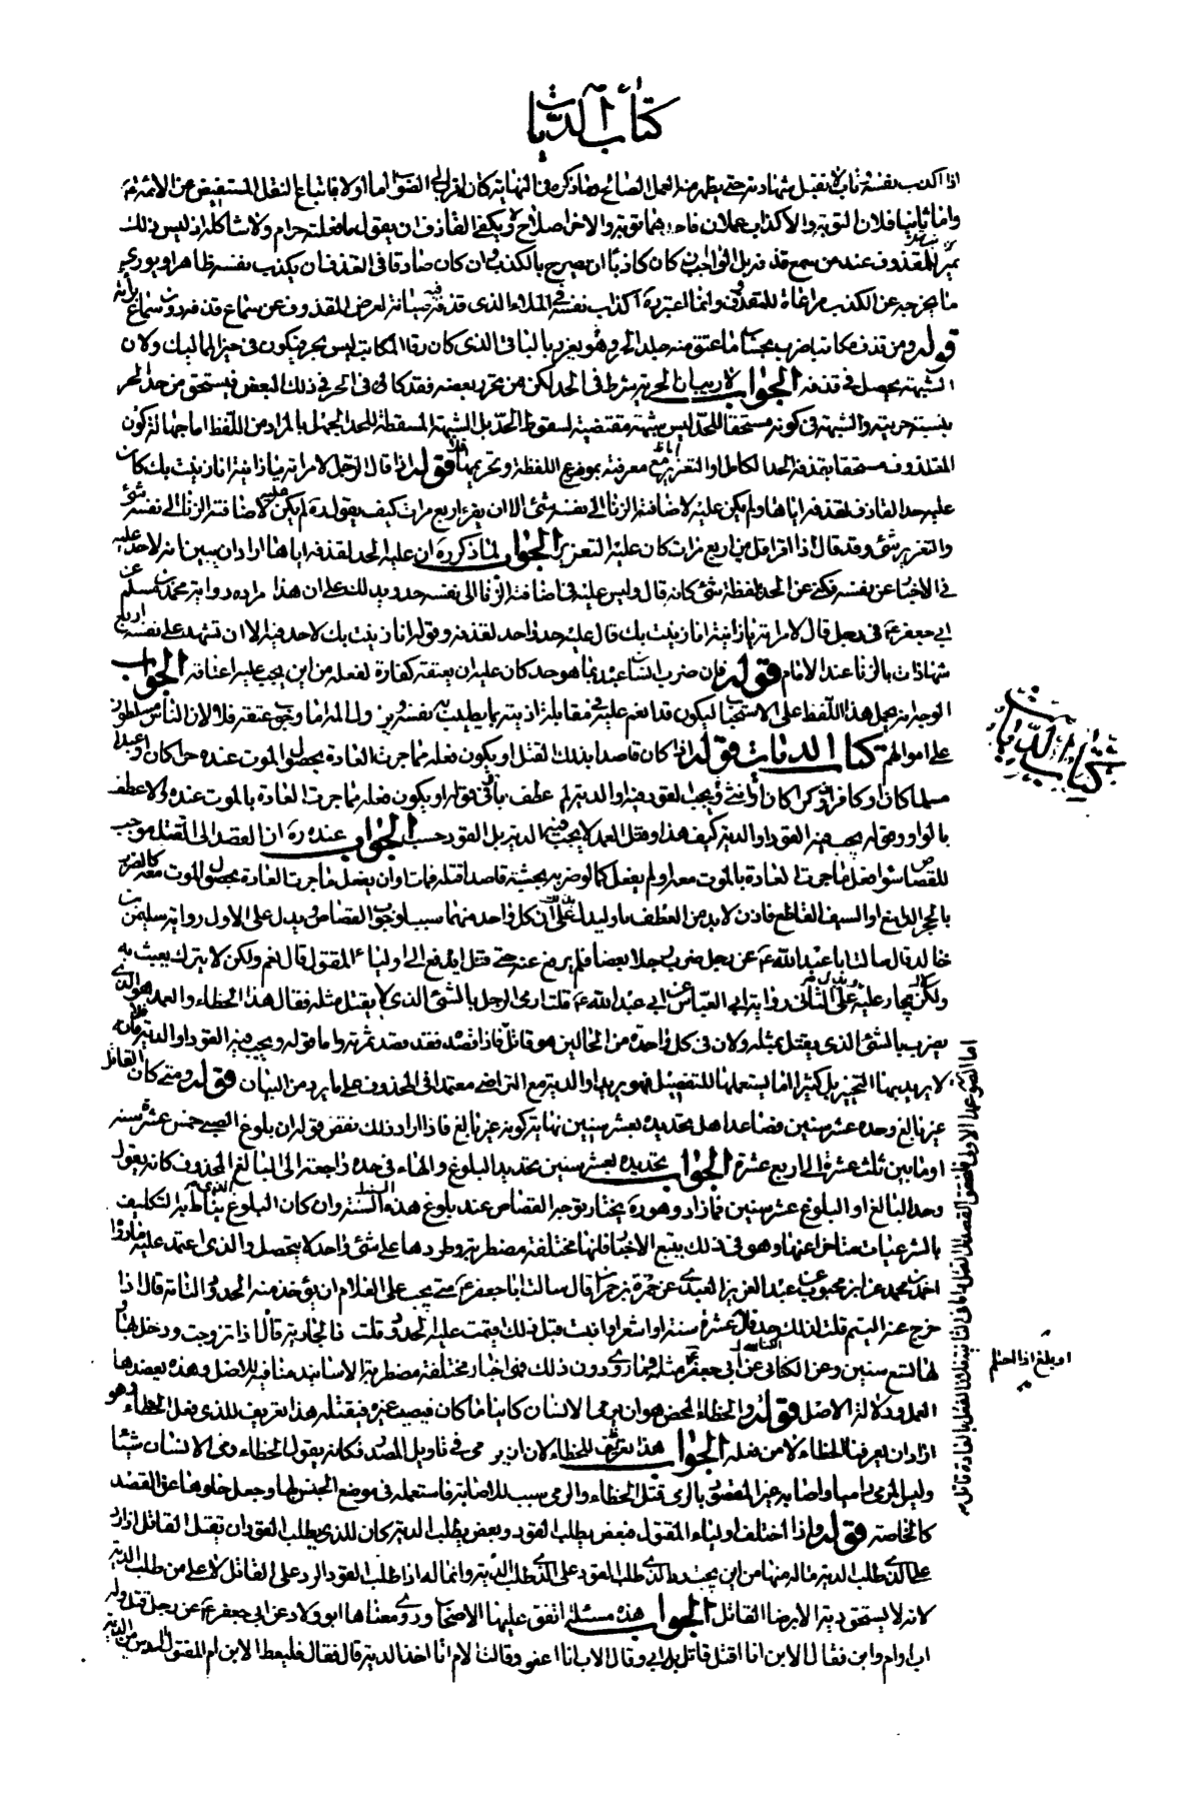 كتاب الديات
اذا اكذب نفسه وتاب لا تقبل شهادته حتى يظهر منه العمل الصالح وما ذكره في النهاية كان اقرب الى الصواب اما اولا فاتباع النقل المستفيض عن الائمة ع
واما ثانيا فلان التوبة والاكذاب عملان فاحدهما توبة والاخر اصلاح ولا يكفي القاذف ان يقول ما فعلته حرام ولا شاكلة اذ ليس ذلك
للمقذوف عند من سمع قذفه بل الواجب ان كان كاذبا ان يصرح بالكذب وان كان صادقا في القذف ان يكذب نفسه ظاهرا ويوري
ما يخرجه عن الكذب مراعاة للمقذوف وانما اعتبر ره اكذاب نفسه في الملاء الذي قذفه فيه صيانة لعرض المقذوف عن سماع قذفه دون سماع براته
قوله ومن قذف مكاتبا ضرب بحساب ما عتق منه حد الحر وهو يعزر بالباقي الذي كان رقا المكاتب ليس بحر فيكون في حيز المماليك ولان
الشبهة يحصل في قذفه الجواب لا ريب ان الحرية شرط في الحد لكن من تحرر بعضه فقد كافى الحر في ذلك البعض فيستحق من حد الحر
بنسبة حريته والشبهة في كونه مستحقا للحد ليس شبهة مقتضية لسقوط الحد بل الشبهة المسقطة للحد الجهل بالمراد من اللفظ اما جهالة كون
المقذوف مستحقا بقذفه الحد الكامل او التعزير مع معرفته بموضوع اللفظة وتحريمها فلا قوله اذا قال الرجل لامراته يا زانية انا زنيت بك كان
عليه حد القاذف لقذفه اياها ولم يكن عليه لاضافة الزنا الى نفسه شئ الا ان يقر اربع مرات كيف يقول ره لم يكن عليه لاضافته الزنا الى نفسه شئ
والتعزير شئ وقد قال اذا اقر اقل من اربع مرات كان عليه التعزير الجواب لما ذكر ره ان عليه الحد لقذفه اياها اراد ان يبين انه لاحد عليه
في الاخبار عن نفسه فكنى عن الحد بلفظة شئ كانه قال وليس عليه في اضافة الزنا الى نفسه حد ويدلك على ان هذا مراده رواية محمد بن مسلم عن
ابي جعفر ع في رجل قال لامراته يا زانية انا زنيت بك قال عليه حد واحد لقذفه وقوله انا زنيت بك لاحد فيه الا ان تشهد على نفسه اربع
شهادات بالزنا عند الامام قوله فان ضرب انسان عبده بما هو حد كان عليه ان يعتقه كفارة لفعله من اين يجب عليه اعتاقه الجواب
الوجه انه يحمل هذا اللفظ على الاستحباب ليكون قد انعم عليه في مقابلة اذيته بما يطيب به نفسه اما وجوب عتقه فلا ولان الناس مسلطون
على اموالهم كتاب الديات قوله اذا كان قاصدا بذلك القتل او يكون فعله مما جرت العادة بحصول الموت عنده حرا كان او عبدا
مسلما كان او كافرا ذكرا كان او انثى ويجب القود فيه او الدية لم عطف باو في قوله او يكون فعله مما جرت العادة بالموت عنده والا عطف
بالواو وقوله يجب فيه القود او الدية كيف هذا وقتل العمد لا يجب فيه الدية بل القود حسب الجواب عنده ره ان القصد الى القتل موجب
للقصاص سواء فعل ما جرت العادة بالموت معه او لم يفعل كما لو ضربه بخشبة قاصدا قتله فمات او ان يفعل ما جرت العادة بحصول الموت معه كالضرب
بالحجر الدامغ او السيف القاطع فاذن لابد من العطف باو ليدل على ان كل واحد منهما سبب لوجوب القصاص ويدل على الاول رواية سليمن بن
خالد قال سالت ابا عبد الله ع عن رجل ضرب رجلا بعصا فلم يرفع عنه حتى قتل ايدفع الى اولياء المقتول قال نعم ولكن لا يترك يعبث به
ولكن يجاز عليه ويدل على الثاني رواية ابي العباس عن ابي عبد الله ع قلت ارمى الرجل بالشئ الذي لا يقتل مثله فقال هذا الخطاء والعمد هو الذي
يضرب بالشئ الذي يقتل بمثله ولان في كل واحدة من الحالين هو قاتل فاذا قصد فقد قصد ثمرته واما قوله ويجب فيه القود او الدية فانه
لا يريد بها التخيير بل كثيرا ما يستعملها للتفصيل فهو يريد او الدية مع التراضي معتمدا في الحذف على ما يرد من البيان قوله ومتى كان القاتل
غير بالغ وحده عشر سنين فصاعدا هل تحديده بعشر سنين نهاية كونه غير بالغ فاذا اراد ذلك نقض قوله ان بلوغ الصبي خمس عشرة سنة
او ما بين ثلث عشرة الى اربع عشرة الجواب تحديده بعشر سنين تحديد البلوغ والهاء في حده راجعة الى البالغ المحذوف كانه يقول
وحد البالغ او البلوغ عشر سنين فما زاد وهو ره يختار توجه القصاص عند بلوغ هذه السنة وان كان البلوغ الذي يناط به التكليف
بالشرعيات متاخرا عنها وهو في ذلك يتبع الاخبار فانها مختلفة مضطربة وطردها على شئ واحد لا يتحصل والذي اعتمد عليه ما رواه
احمد بن محمد عن ابن محبوب عن عبد العزيز العبدي عن حمزة بن حمران قال سالت ابا جعفر ع متى يجب على الغلام ان يؤخذ منه الحدود التامة قال اذا
خرج عنه اليتم قلت لذلك حد قال عشرة سنة او اشعر او انبت قبل ذلك اقيمت عليه الحدود قلت فالجارية قال اذا تزوجت ودخل بها
لها تسع سنين وعن الكناسي عن ابي جعفر ع مثله وما روي دون ذلك فهي اخبار مختلفة مضطربة الاسانيد منافية للاصل وهذه يعضدها
العمل ودلالة الاصل قوله والخطاء المحض هو ان يرمي الانسان كائنا ما كان فيصيب غيره فيقتله هذا تعريف للذي فعل الخطاء وهو
اراد ان يعرفنا الخطاء لا من فعله الجواب هذا تعريف للخطاء لان ان يرمي في تاويل المصدر فكانه يقول الخطاء رمى الانسان شيئا
وليس الرمي واصابه غير المقصود بالرمي قتل الخطاء والرمي سبب للاصابة فاستعمله في موضع الجنس لها وجعل خلوها عن القصد
كالخاصة قوله واذا اختلف اولياء المقتول فبعض يطلب القود وبعض يطلب الدية كان للذي يطلب القود ان يقتل القاتل اذا رد
على الذي طلب الدية ماله منها من اين يجب رد الذي طلب القود على الذي طلب الدية وانما له اذا طلب القود الرد على القاتل لا على من طلب الدية
لانه لا يستحق دية الا برضا القاتل الجواب هذه مسئلة اتفق عليها الاصحاب وروى معناها ابو ولاد عن ابي جعفر ع عن رجل قتل وله
اب وام وابن فقال الابن انا اقتل قاتل ابي وقال الاب انا اعفو وقالت الام انا اخذ الدية قال فقال فليعط الابن ام المقتول السدس من الدية
كتاب الديات
او بلغ اذا احتلم